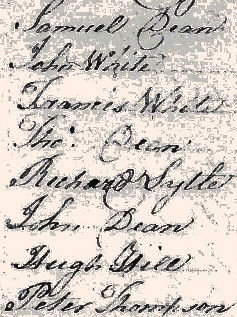 Samuel Dean
John White
Francis White
Tho.s Dean
Richard Sytle
John Dean
Hugh Hill
Peter Thompson